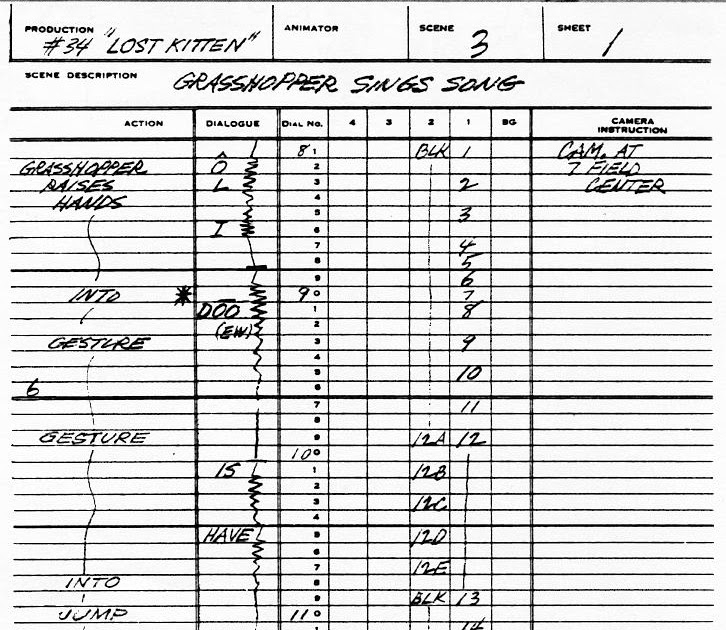 PRODUCTION ANIMATOR SCENE SHEET
#34 "LOST KITTEN" 3 1
SCENE DESCRIPTION GRASSHOPPER SINGS SONG
ACTION DIALOGUE DIAL NO. 4 3 2 1 BG CAMERA INSTRUCTION
8 1 BLK 1 CAM. AT
GRASSHOPPER Ô 2 7 FIELD
RAISES L 3 2 CENTER
HANDS 4
5 3
I 6
7 4
8 5
9 6
INTO * 9 0 7
DOO 1 8
(EW) 2
GESTURE 3 9
4
5 10
6 6
7 11
8
GESTURE 9 12A 12
10 0
IS 1 12B
2
3 12C
4
HAVE 5 12D
6
7 12E
INTO 8
9 BLK 13
JUMP 11 0
1 14